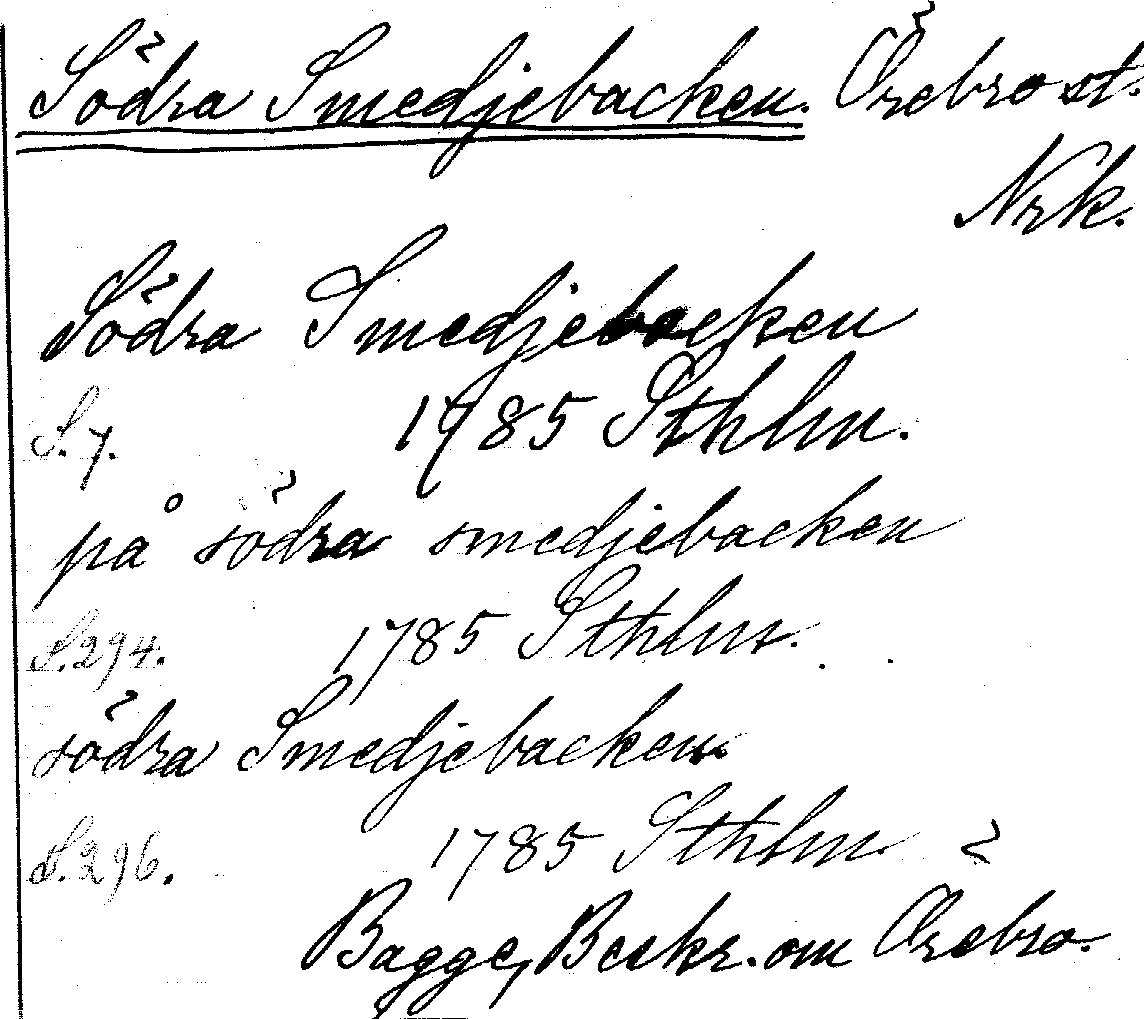 Södra Smedjebacken. Örebro st.
Nrk.
Södra Smedjebacken
S. 7. 1785 Sthlm.
på södra smedjebacken
S. 294. 1785 Sthlm.
södra Smedjebacken
S. 296. 1785 Sthlm.
Bagge, Beskr. om Örebro.